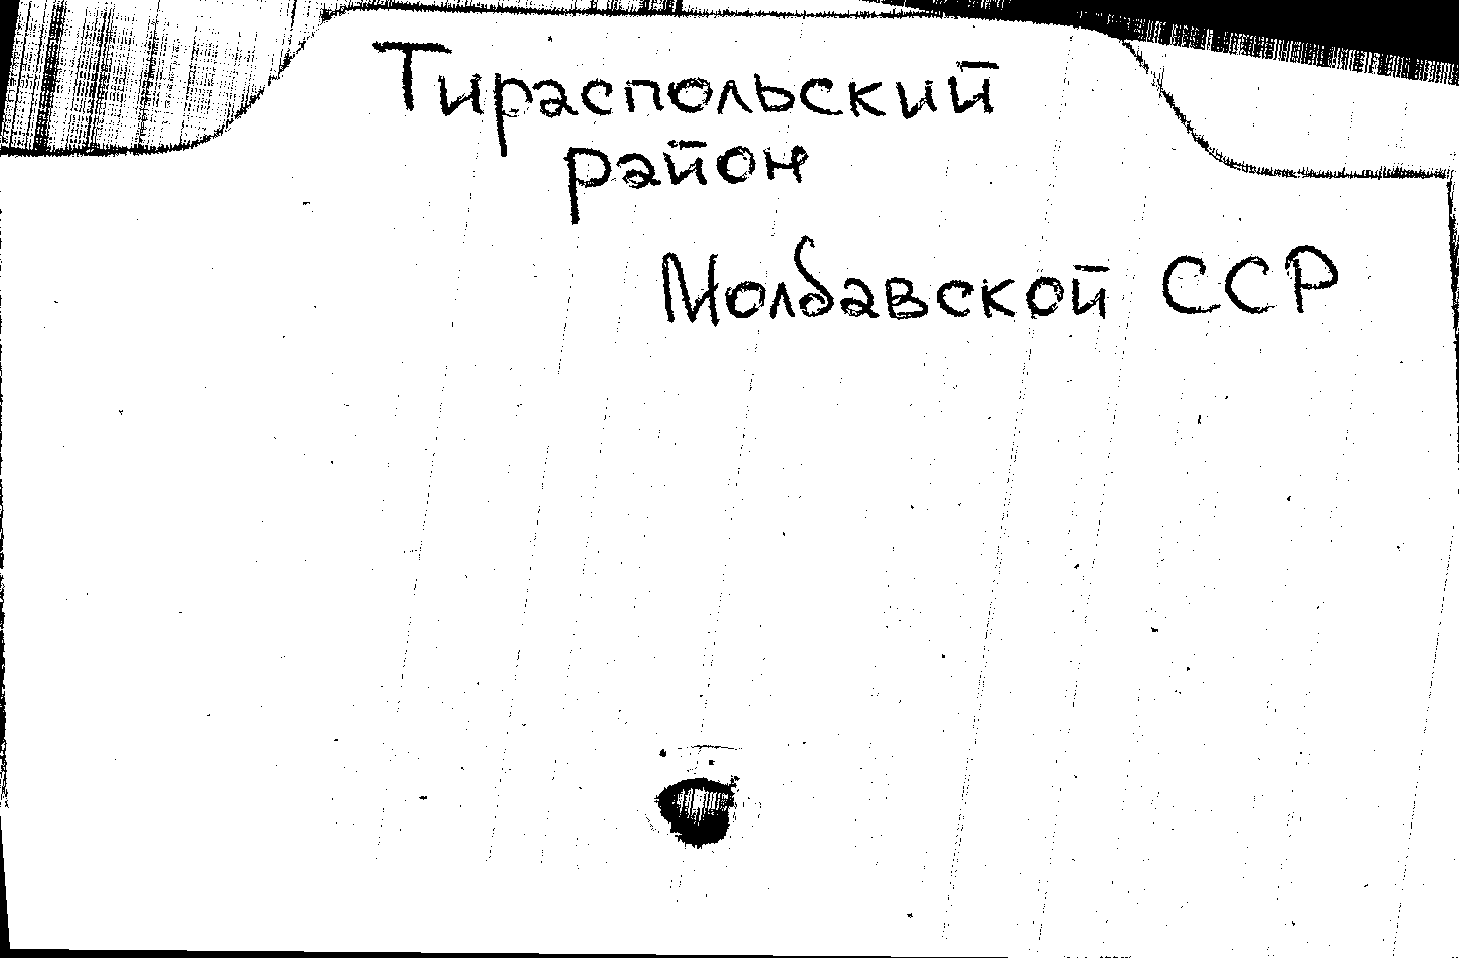 Тираспольский
район
Молдавской ССР